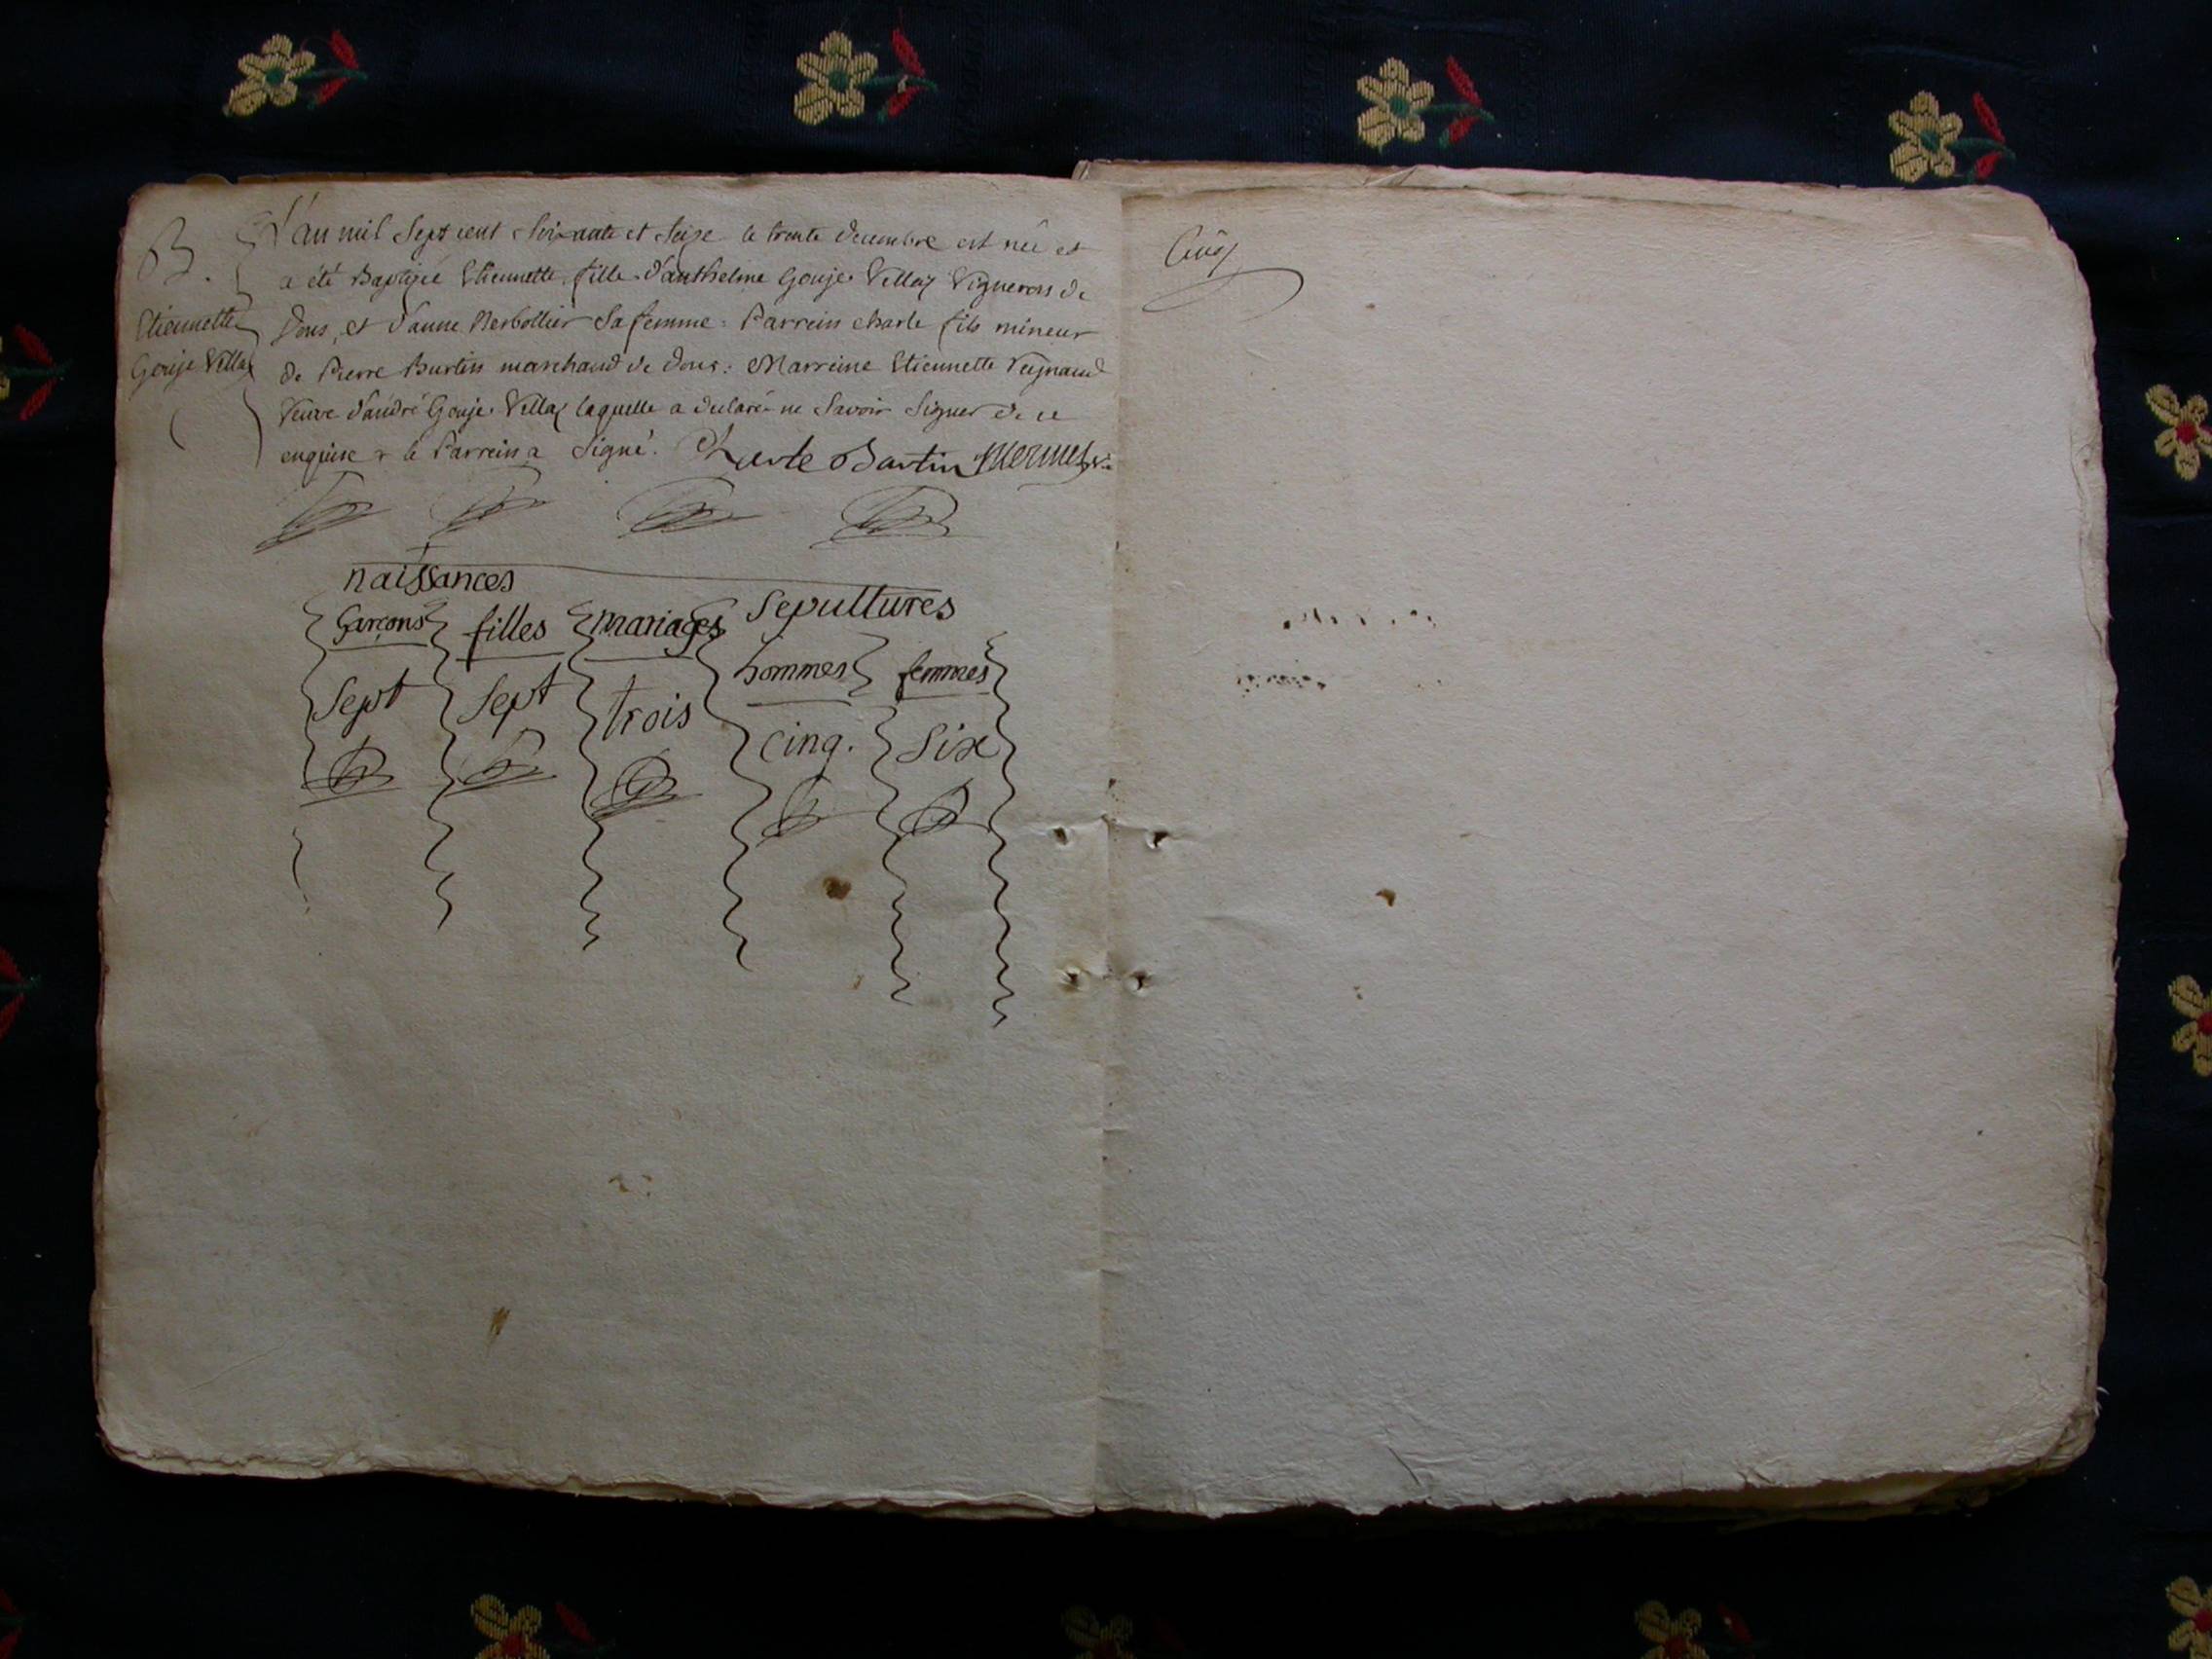 B.
Etiennette
Gouje Villaz
L'an mil Sept cent Soixante et Seize le trente decembre est née et
a été Baptizée Etiennette fille d'anthelme Gouje Villaz Vigneron de
Dons, et d'anne Berbollier Sa femme: Parrein charle fils mineur
de Pierre Burtin marchand de dons: Marreine Etiennette
Veuve d'andré Gouje Villaz laquelle a declaré ne Savoir Signer de ce
enquise & le Parrein a Signé. Charle Bartin
naissances
Sepultures
garçons filles mariages
hommes femmes
Sept Sept trois
cinq. Six
Cinq